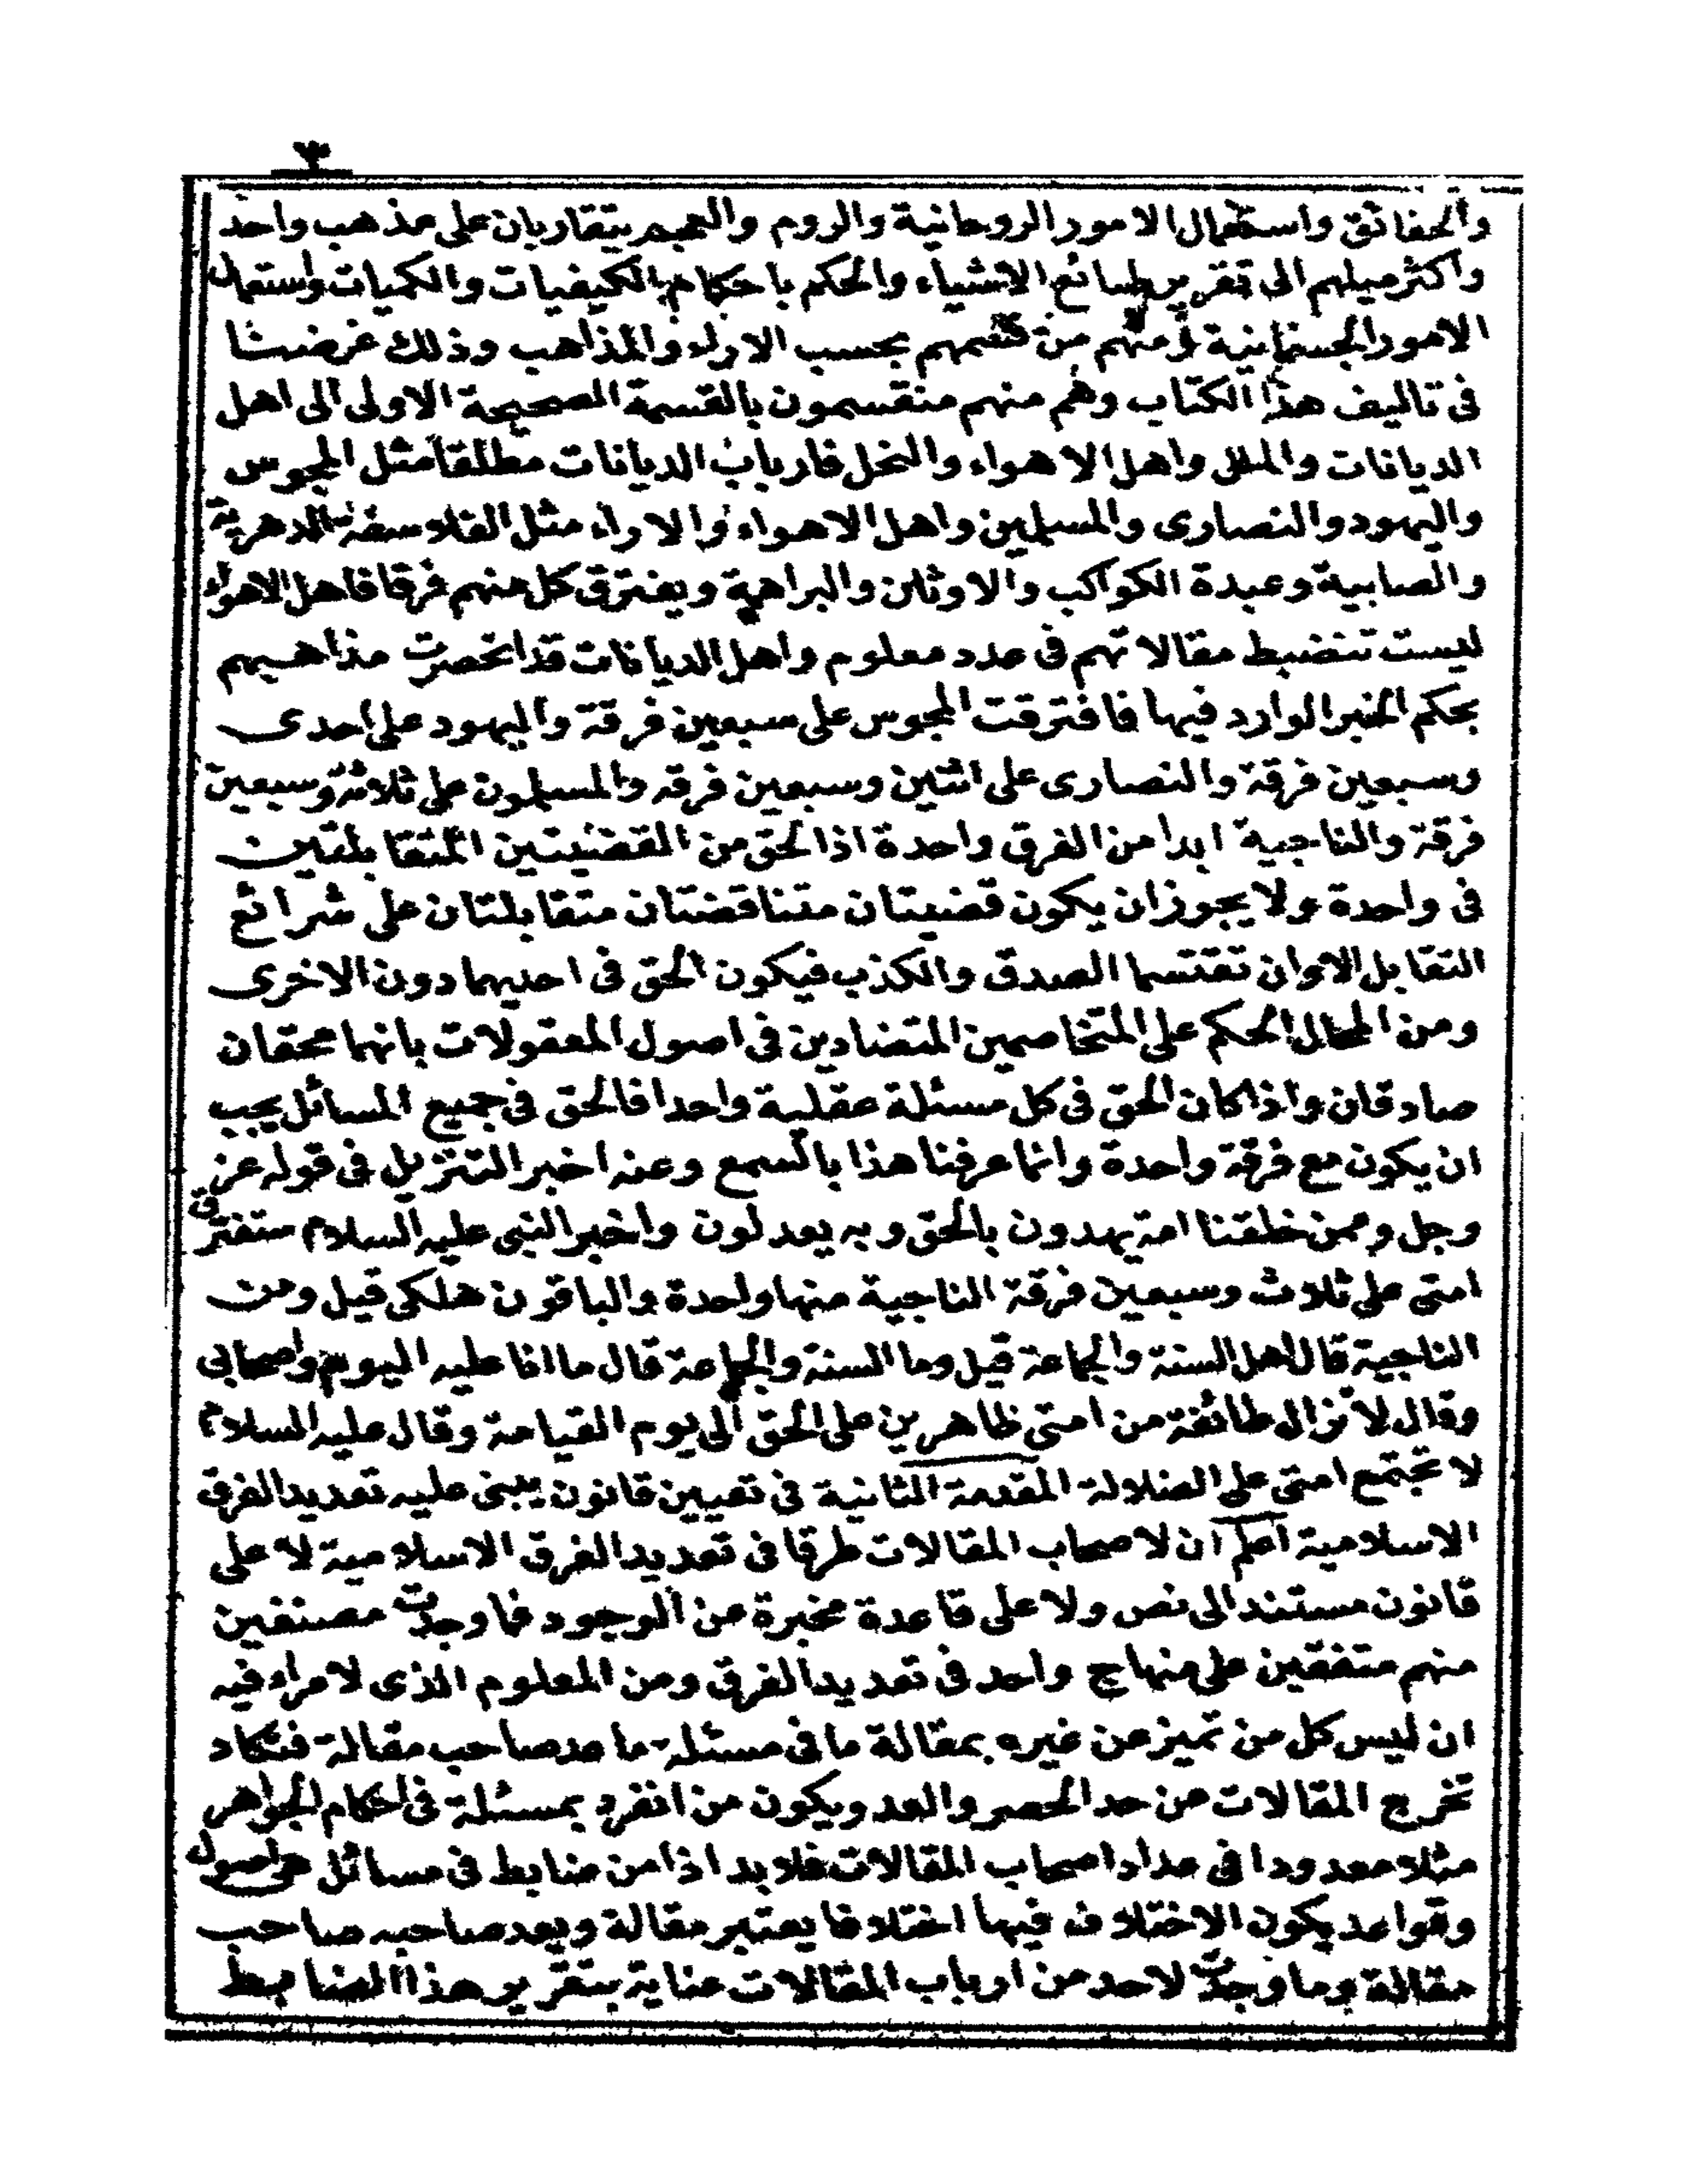 ٣
والحقائق واستعمال الامور الروحانية والروم والعجم يتقاربان على مذهب واحد
واكثر ميلهم الى تقرير طبائع الاشياء والحكم باحكام الكيفيات والكميات واستعمال
الامور الجسمانية ومنهم من قسمهم بحسب الاراء والمذاهب وذلك غرضنا
فى تاليف هذا الكتاب وهم منهم منقسمون بالقسمة الصحيحة الاولى الى اهل
الديانات والملل واهل الاهواء والنحل فارباب الديانات مطلقا مثل المجوس
واليهود والنصارى والمسلمين واهل الاهواء والاراء مثل الفلاسفة الدهرية
والصابية وعبدة الكواكب والاوثان والبراهمة ويفترق كل منهم فرقا فاهل الاهواء
ليست تنضبط مقالاتهم فى عدد معلوم واهل الديانات قد انحصرت مذاهبهم
بحكم الخبر الوارد فيها فافترقت المجوس على سبعين فرقة واليهود على احدى
وسبعين فرقة والنصارى على اثنين وسبعين فرقه والمسلمون على ثلاثة وسبعين
فرقة والناجية ابدا من الفرق واحدة اذ الحق من القضيتين المتقابلتين
فى واحدة ولا يجوز ان يكون قضيتان متناقضتان متقابلتان على شرائع
التقابل الا وان تقتسما الصدق والكذب فيكون الحق فى احديهما دون الاخرى
ومن المحال الحكم على المتخاصمين المتضادين فى اصول المعقولات بانهما محقان
صادقان واذا كان الحق فى كل مسئلة عقلية واحدا فالحق فى جميع المسائل يجب
ان يكون مع فرقة واحدة وانما عرفنا هذا بالسمع وعنه اخبر التنزيل فى قوله عز
وجل وممن خلقنا امة يهدون بالحق وبه يعدلون واخبر النبى عليه السلام ستفترق
امتى على ثلاث وسبعين فرقة الناجية منها واحدة والباقون هلكى قيل ومن
الناجية قال اهل السنة والجماعة قيل وما السنة والجماعة قال ما انا عليه اليوم واصحابى
وقال لا تزال طائفة من امتى ظاهرين على الحق الى يوم القيامة وقال عليه السلام
لا تجتمع امتى على الضلالة المقدمة الثانية فى تعيين قانون يبنى عليه تعديد الفرق
الاسلامية اعلم ان لاصحاب المقالات طرقا فى تعديد الفرق الاسلامية لا على
قانون مستند الى نص ولا على قاعدة مخبرة عن الوجود فما وجدت مصنفين
منهم متفقين على منهاج واحد فى تعديد الفرق ومن المعلوم الذى لا مراء فيه
ان ليس كل من تميز عن غيره بمقالة ما فى مسئلة ما عد صاحب مقالة فتكاد
تخرج المقالات عن حد الحصر والعد ويكون من انفرد بمسئلة فى احكام الجواهر
مثلا معدودا فى عداد اصحاب المقالات فلا بد اذا من ضابط فى مسائل هى اصول
وقواعد يكون الاختلاف فيها اختلافا يعتبر مقالة ويعد صاحبه صاحب
مقالة وما وجدت لاحد من ارباب المقالات عناية بتقرير هذا الضابط